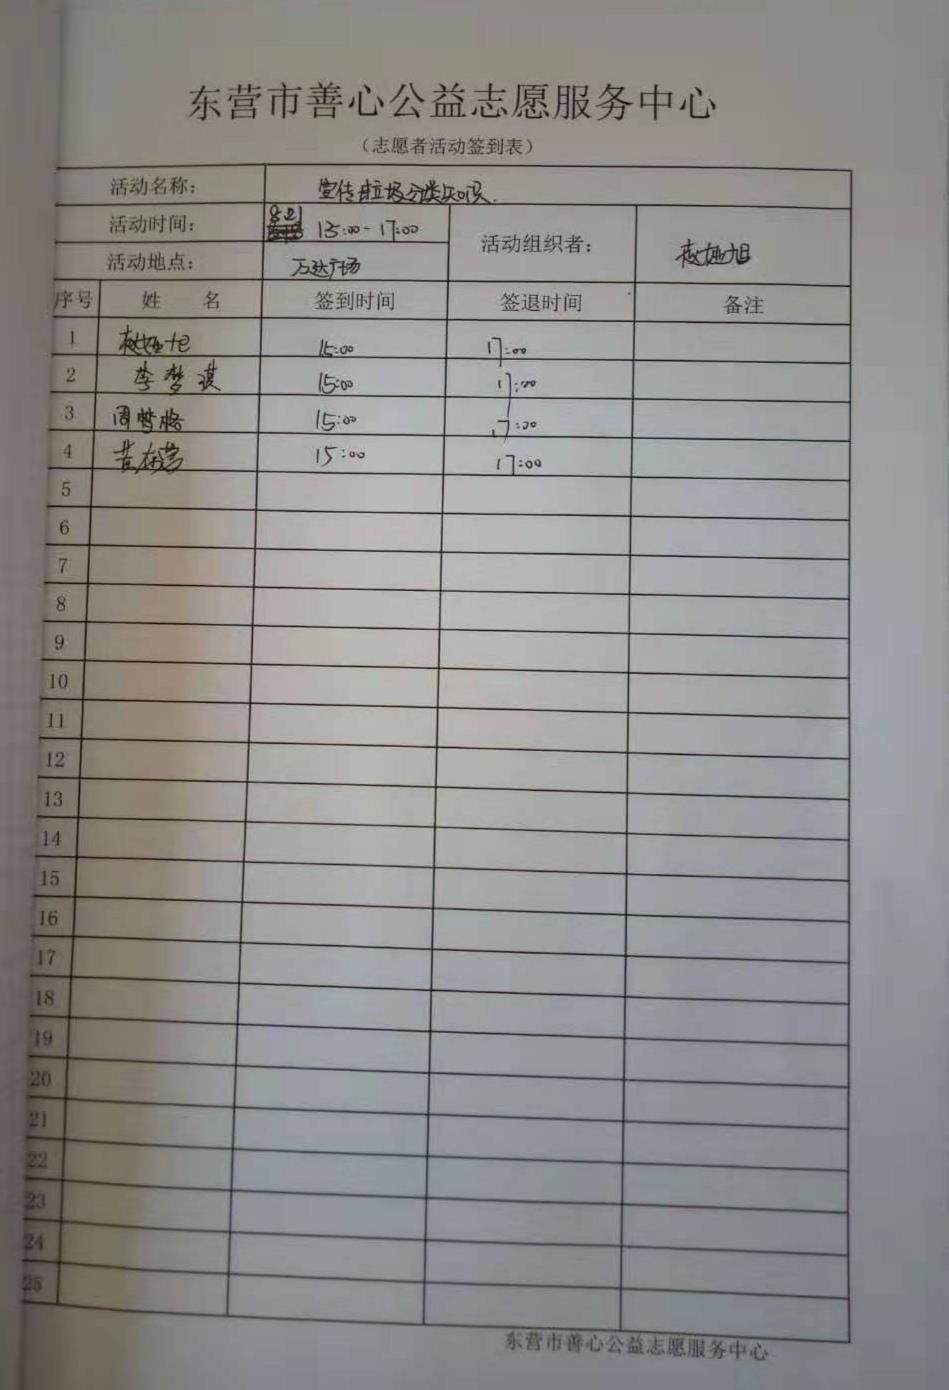 东营市善心公益志愿服务中心
（志愿者活动签到表）
活动名称： 宣传垃圾分类知识.
活动时间： 15:00-17:00 活动组织者：
活动地点： 万达广场
序号 姓 名 签到时间 签退时间 备注
1 15:00 17:00
2 李梦琪 15:00 17:00
3 周梦格 15:00 17:00
4 15:00 17:00
5
6
7
8
9
10
11
12
13
14
15
16
17
18
19
20
21
22
23
24
25
东营市善心公益志愿服务中心